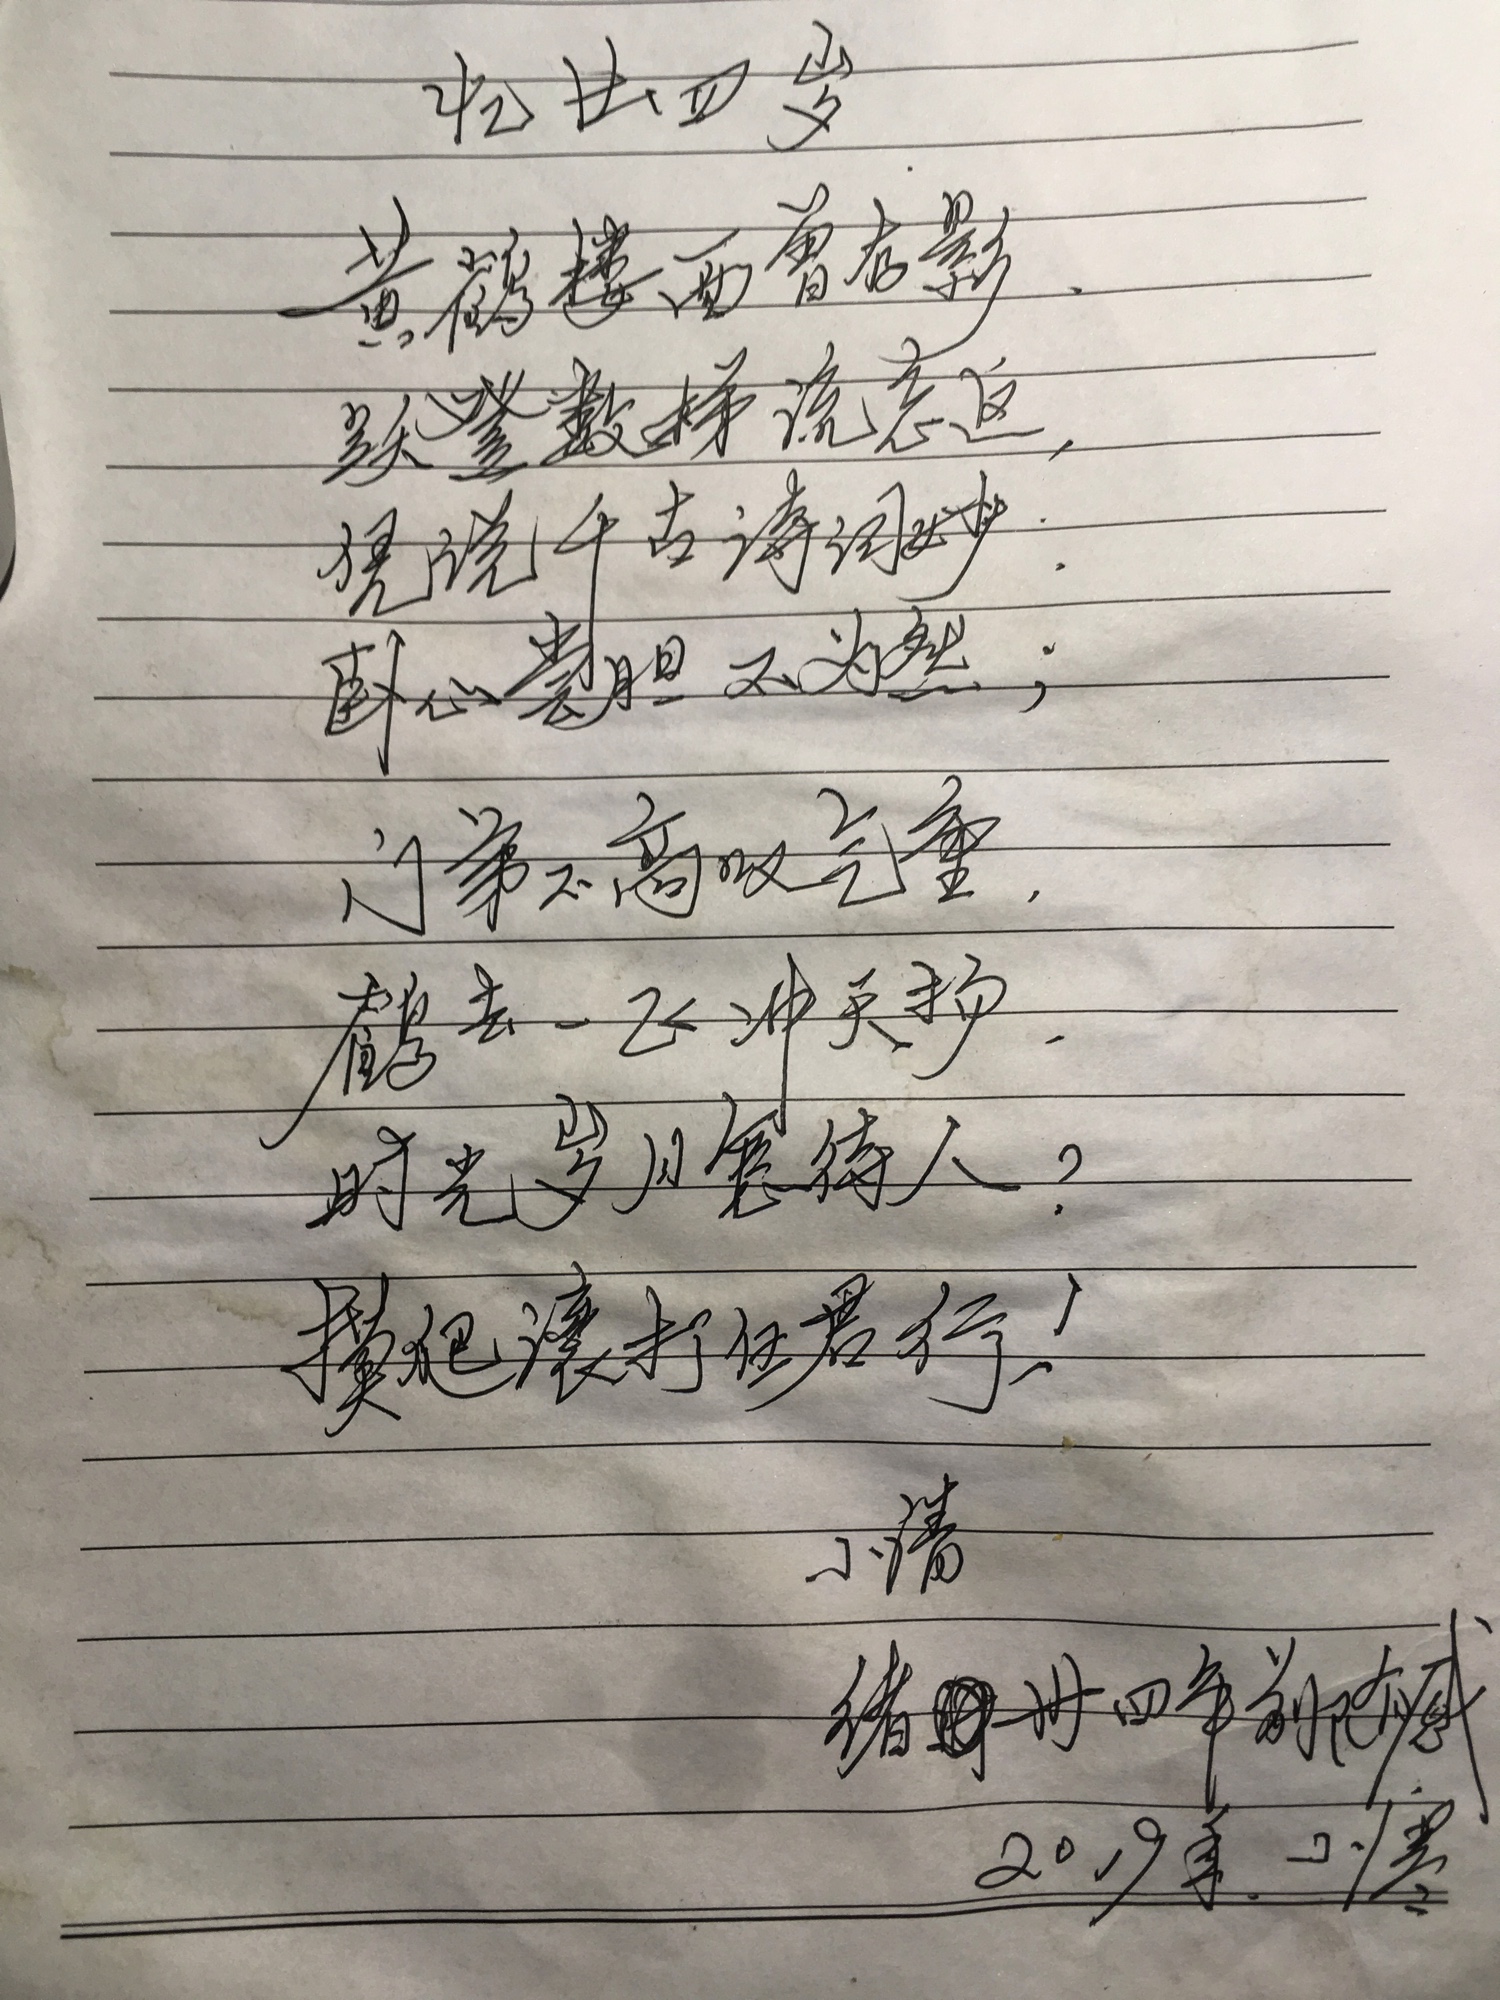 忆廿四岁
黄鹤楼西曾存影.
跃登数梯流忘返,
凭说千古诗词妙.
卧心尝胆不为然;
门第不高叹气重.
鹤去一飞冲天扬.
时光岁月怎待人?
摸爬滚打任君行!
小清
绪 卅四年前随感
2019年.小寒